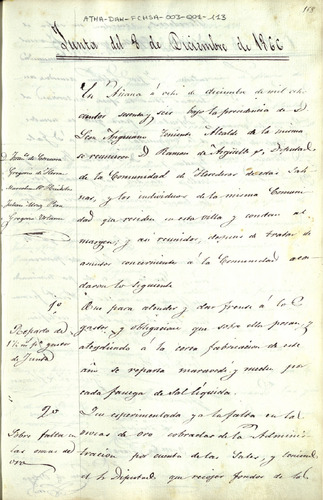 ATHA-DAH-FCHSA-003-001-113
118
Junta del 8 de Diciembre de 1866
En Añana á ocho de diciembre de mil ocho
cientos sesenta y seis bajo la presidencia de D.
Leon Teniente Alcalde de la misma
se reunieron D. Ramon de Diputado
de la Comunidad de Herederos de las Sali
nas, y los individuos de la misma Comuni
dad que residen en esta villa y constan al
margen, y asi reunidos, despues de tratar de
asuntos concerniente á la Comunidad acor
daron lo siguiente
D.
Gregorio de
Julian
Gregorio
1º
Reparto de
1½ m. pª gastos
de Junta
Que para atender y dar frente á los
gastos, y obligaciones que sobre ella pesan y
atendiendo á la corta fabricacion de este
año se reparta maravedi y medio por
cada fanega de Sal liquida.
2º
Sobre falta en
las onzas de
oro
Que esperimentada ya la falta en las
onzas de oro cobradas de la Adminis
tracion por cuenta de las Sales, y
el Diputado que recojer fondos de la